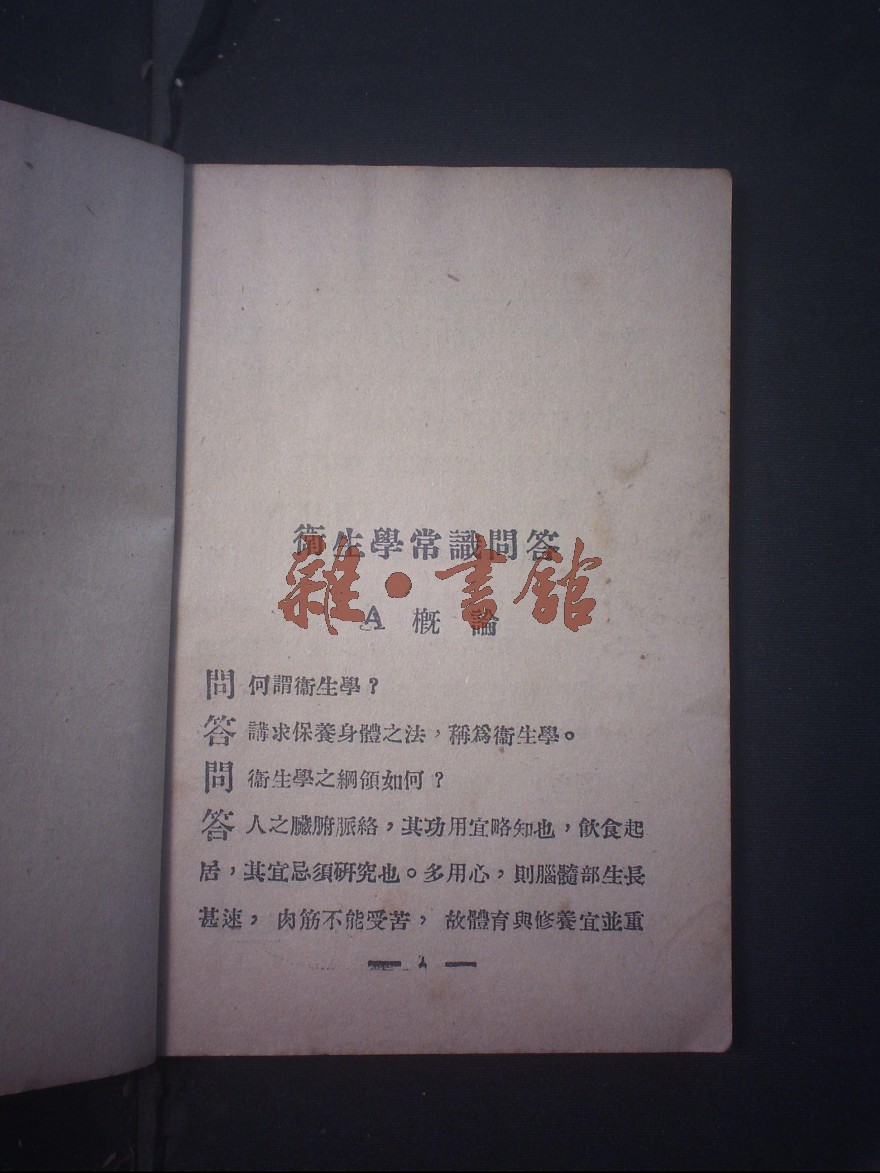 衞生學常識問答
雜·書館
A 槪論
問 何謂衞生學？
答 講求保養身體之法，稱爲衞生學。
問 衞生學之綱領如何？
答 人之臟腑脈絡，其功用宜略知也，飲食起
居，其宜忌須研究也。多用心，則腦髓部生長
甚速，肉筋不能受苦，故體育與修養宜並重
— 1 —